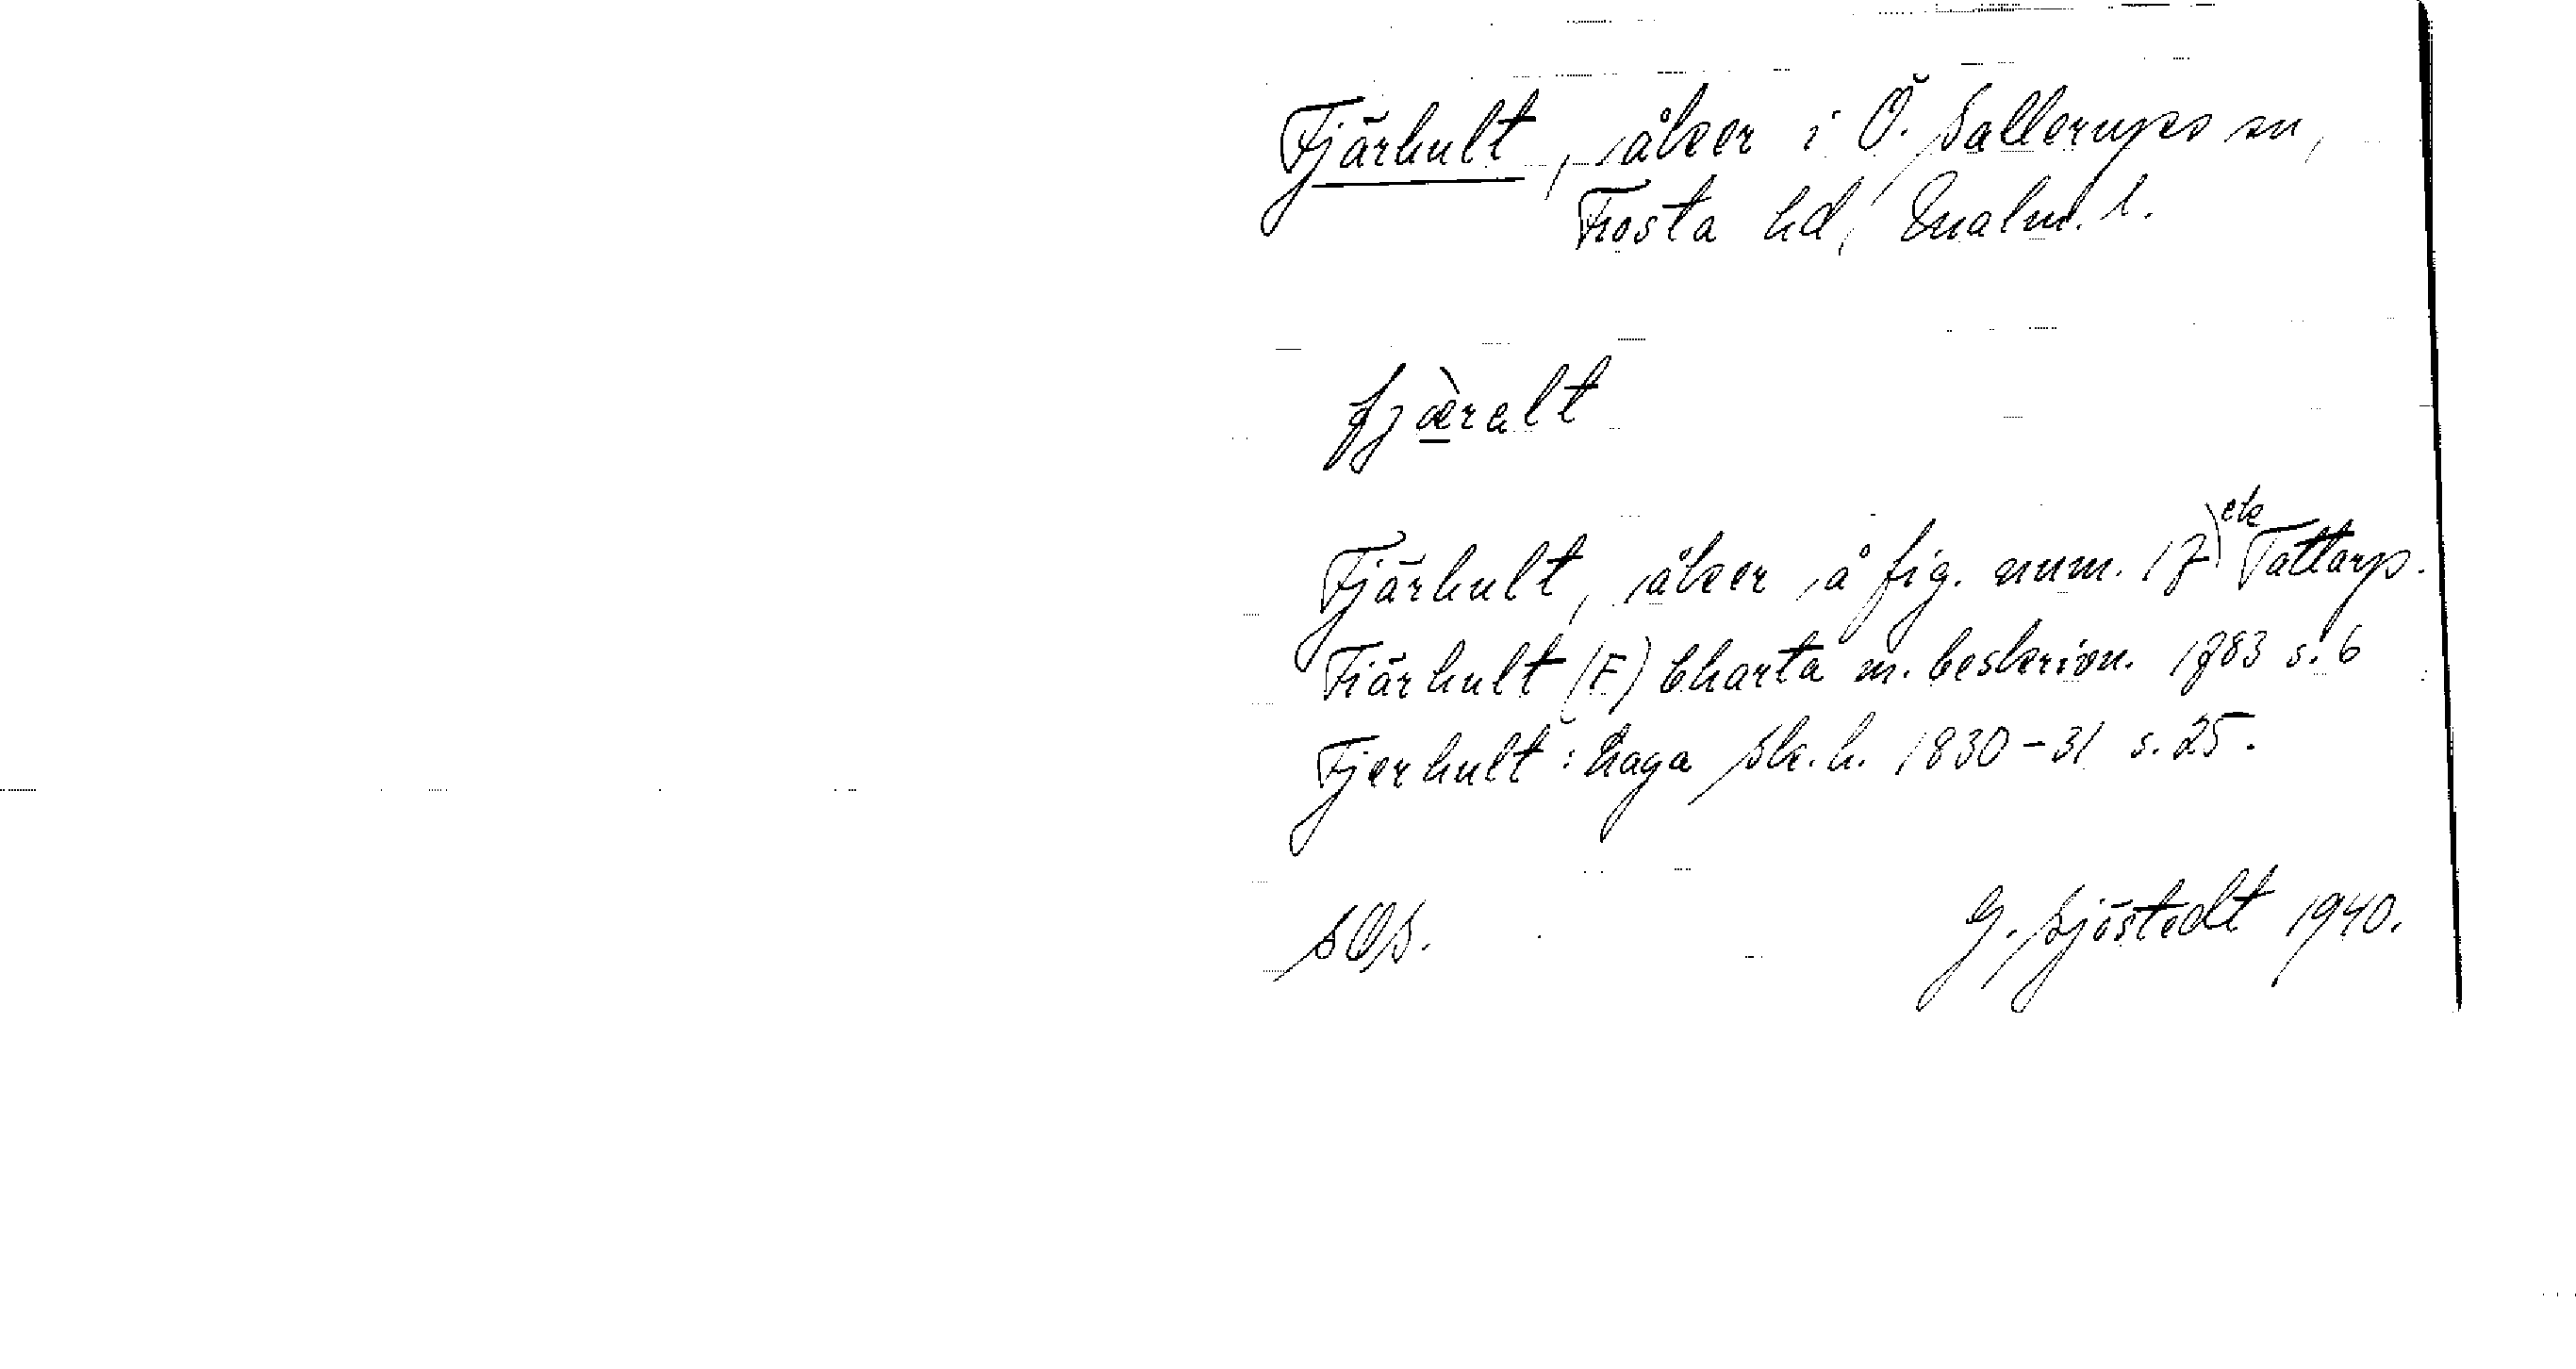 Fjärhult, åker i Ö. Sallerups sn,
Frosta hd, Malm. l.
fjæ̀ralt
Fjärhult, åker å fig. num. 17) ek Tattarp.
Fiärhult (F) Charta m. beskrivn. 1783 s. 6
Fjerhult: haga Sk. h. 1830-31 s. 25.
SOS. G. Sjöstedt 1940.